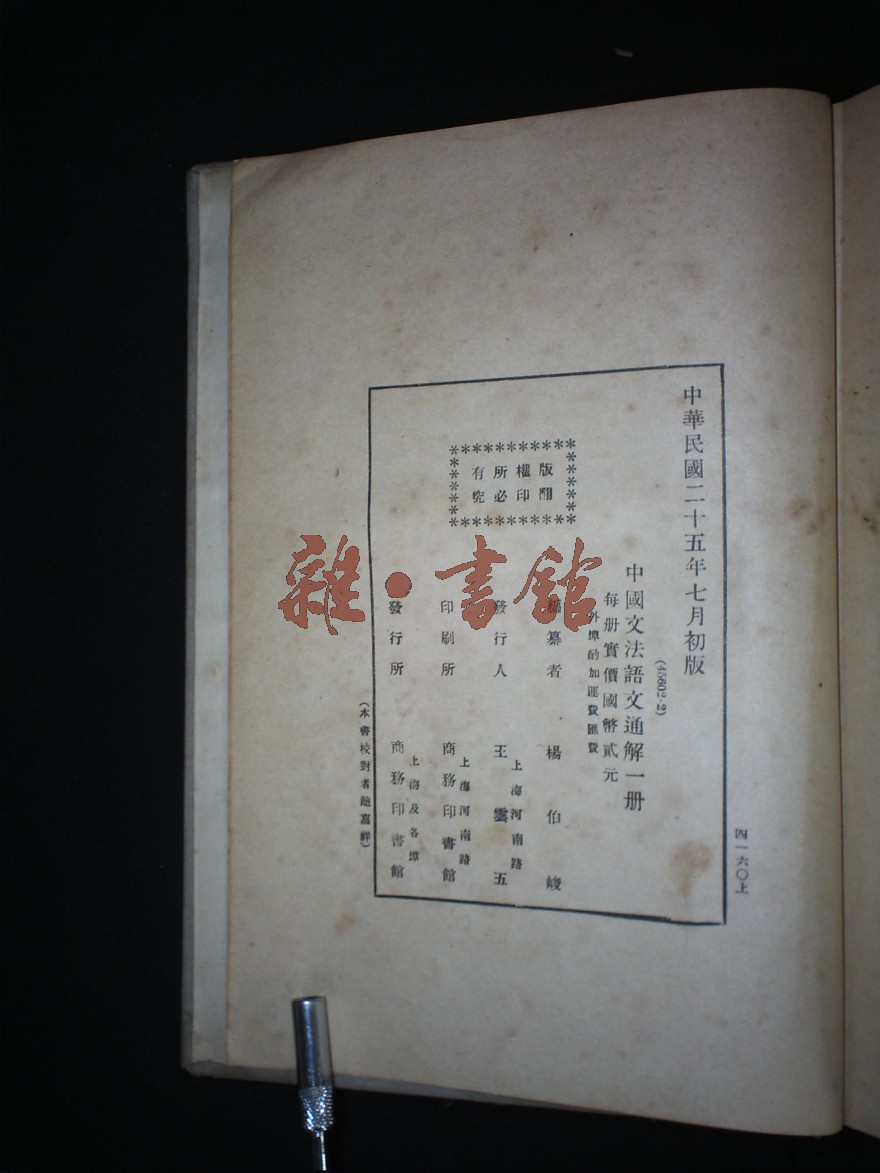 中華民國二十五年七月初版
(45602·2)
中國文法語文通解一册
每册實價國幣貳元
外埠酌加運費匯費
版權所有
翻印必究
編纂者 楊伯峻
上海河南路
發行人 王雲五
上海河南路
印刷所 商務印書館
上海及各埠
發行所 商務印書館
(本書校對者鮑嘉祥)
四一六〇上
雜·書館